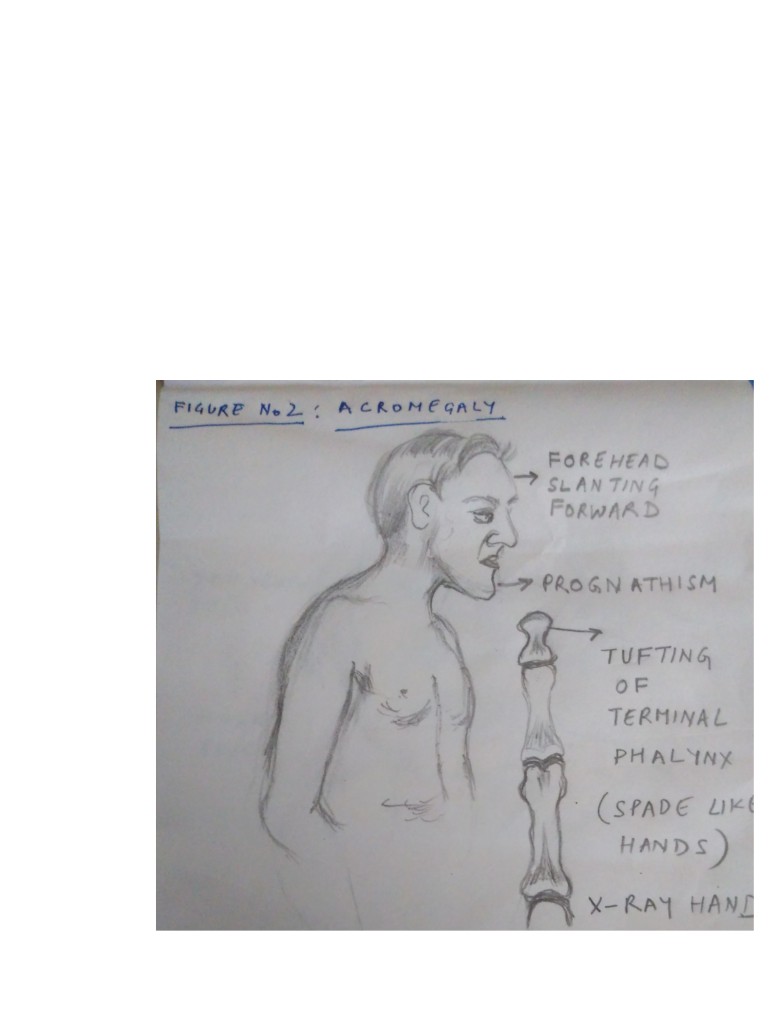 FIGURE No2: ACROMEGALY
FOREHEAD
SLANTING
FORWARD
PROGNATHISM
TUFTING
OF
TERMINAL
PHALYNX
(SPADE LIKE
HANDS)
X-RAY HAND